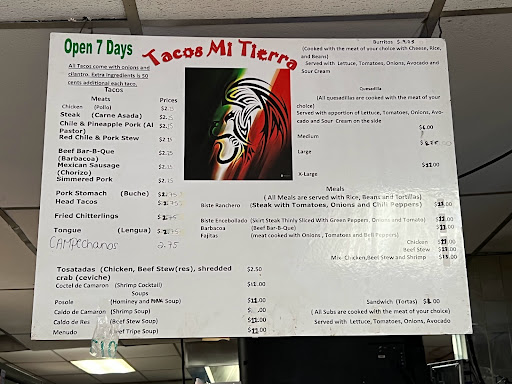 Open 7 Days
Tacos Mi Tierra
All Tacos come with onions and
cilantro. Extra ingredients is 50
cents additional each taco.
Tacos
Meats Prices
Chicken (Pollo)
Steak (Carne Asada)
Chile & Pineapple Pork (Al
Pastor)
Red Chile & Pork Stew
Beef Bar-B-Que
(Barbacoa)
Mexican Sausage
(Chorizo)
Simmered Pork
Pork Stomach (Buche)
Head Tacos
Fried Chitterlings
Tongue (Lengua)
CAMPEchanos 2.75
Tosatadas (Chicken, Beef Stew(res), shredded $2.50
crab (ceviche)
Coctel de Camaron (Shrimp Cocktail)
Soups
Posole (Hominey and Pork Soup) $11.00
Caldo de Camaron (Shrimp Soup)
Caldo de Res (Beef Stew Soup)
Menudo (Beef Tripe Soup)
Burritos
(Cooked with the meat of your choice with Cheese, Rice,
and Beans)
Served with Lettuce, Tomatoes, Onions, Avocado and
Sour Cream
Quesadilla
(All quesadillas are cooked with the meat of your
choice)
Served with apportion of Lettuce, Tomatoes, Onions, Avo-
cado and Sour Cream on the side
Medium
Large
X-Large
Meals
( All Meals are served with Rice, Beans and Tortillas)
Biste Ranchero (Steak with Tomatoes, Onions and Chili Peppers)
Biste Encebollado (Skirt Steak Thinly Sliced With Green Peppers, Onions and Tomato)
Barbacoa (Beef Bar-B-Que)
Fajitas (meat cooked with Onions , Tomatoes and Bell Peppers)
Chicken
Beef Stew
Mix- Chicken,Beef Stew and Shrimp
Sandwich (Tortas)
(All Subs are cooked with the meat of your choice)
Served with Lettuce, Tomatoes, Onions, Avocado